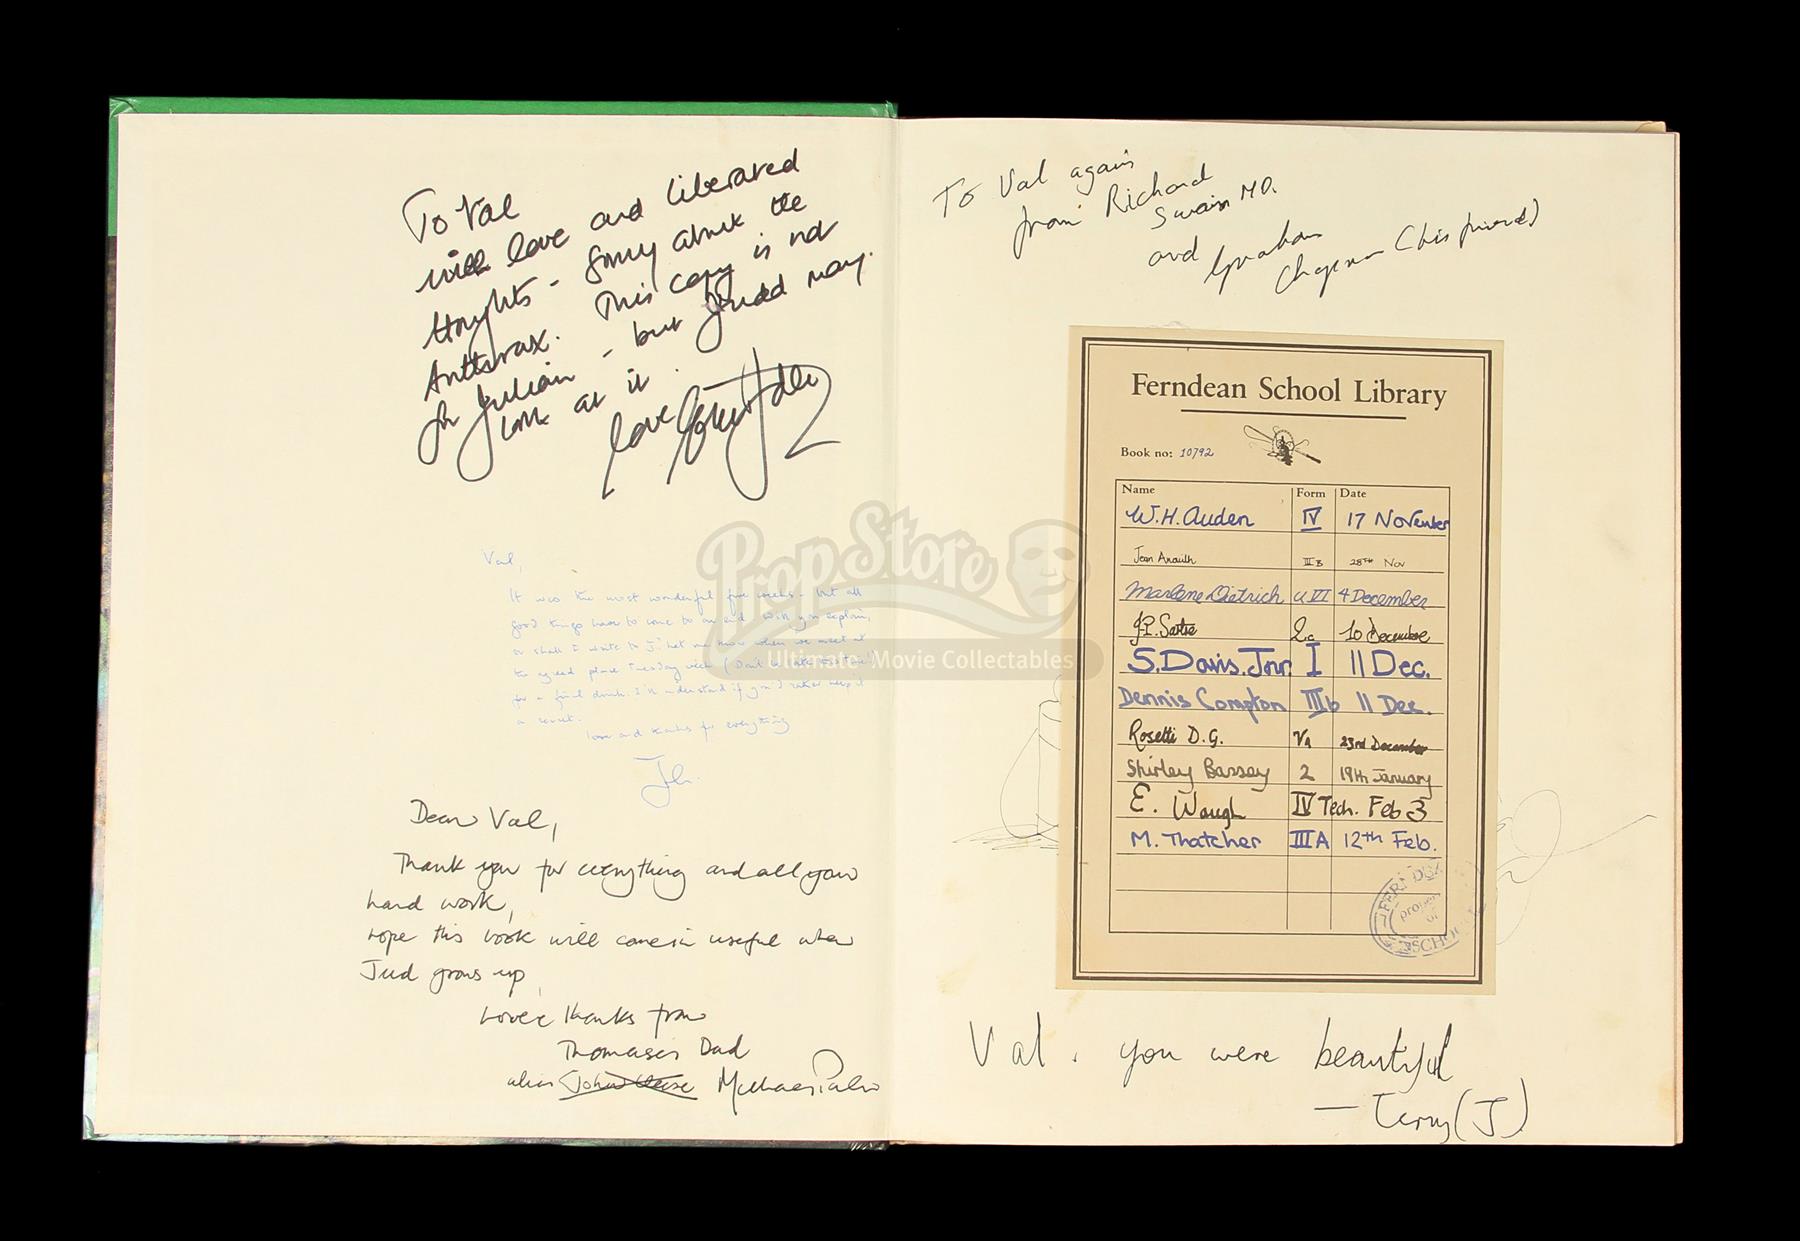 To Val
with love and liberated
thoughts - Sorry about the
Anthrax. This copy is not
for Julian - but Judd may
look at it.
love
Val,
It was the most wonderful five weeks - but all
good things have to come to an end. Will you explain,
or shall I write to J? Let me know when we meet at
the agreed place Tuesday week (Don't
for a final drink. I'll understand if you'd rather keep it
a secret.
love and thanks for everything
John.
Dear Val,
Thank you for everything and all your
hard work,
hope this book will come in useful when
Jud grows up,
Love & thanks from
Thomas's Dad
alias John Cleese Michael Palin
To Val again
from Richard
Swain MD.
and Graham
Chapman (his friend)
Ferndean School Library
Book no: 10792
Name Form Date
W.H. Auden IV 17 November
Jean Anouilh III B 28th Nov
Marlene Dietrich U VI 4 December
J.P. Sartre 2c 10 Decembre
S. Davis. Jnr. I 11 Dec.
Dennis Compton IIIb 11 Dec.
Rosetti D.G. Va 23rd December
Shirley Bassey 2 19th January
E. Waugh IV Tech. Feb 3
M. Thatcher III A 12th Feb.
property
of
SCHOOL
Val. you were beautiful
— Terry (J)
PropStore
Ultimate Movie Collectables